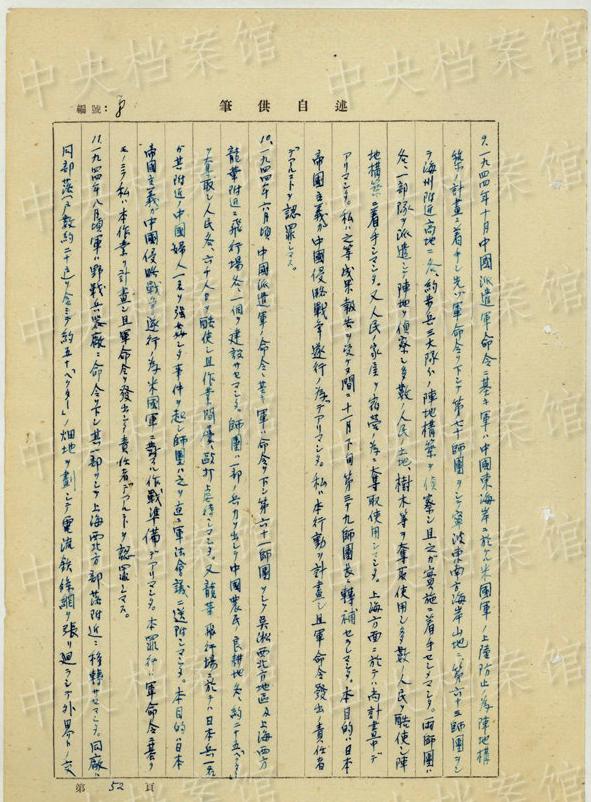 中央档案馆
中央档案馆
述自供筆
編號:
9、一九四四年十月中國派遣軍命令ニ基キ軍ハ中國東海岸ニ於ル米國軍ノ上陸防止ノ為陣地構
築ノ計畫ニ着手シ先ヅ軍命令ヲ下シテ第七十師團ヲシテ寧波東南方海岸山地ニ、第六十五師團ヲシ
テ海州附近高地ニ各、約歩兵三大隊分ノ陣地構築ヲ偵察シ且之ガ實施ニ着手セシメマシタ。両師團ハ
各一部隊ヲ派遣シテ陣地ヲ偵察シ多数ノ人民ノ土地、樹木等ヲ奪取使用シ多数ノ人民ヲ酷使シ陣
地構築ニ着手シマシタ。又人民ノ家屋ヲ宿営ノ為ニ奪取使用シマシタ。上海方面ニ於テハ尚計畫中デ
アリマシタ。私ハ之等成果ノ報告ヲ受ケヌ間ニ十一月下旬第三十九師團長ニ轉補セラレマシタ。本目的ハ日本
帝國主義ガ中國侵略戰争遂行ノ為デアリマシタ。私ハ本行動ヲ計畫シ且軍命令發出ノ責任者
デアルコトヲ認罪シマス。
10、一九四四年六月頃、中國派遣軍ノ命令ニ基キ軍ハ命令ヲ下シ第六十一師團ヲシテ吳淞西北方地區及上海西方
龍華附近ニ飛行場各、一個ヲ建設サセマシタ。師團ハ一部ノ兵力ヲ出シテ中國農民ノ良耕地各、約二十五ヘクタール
ヲ奪取シ人民各、六千人ヲ酷使シ且作業間屡、殴打、虐待シマシタ。又龍華飛行場ニ於テハ日本兵一名
ガ其附近ノ中國婦人一名ヲ強姦シタ事件ヲ起シ師團ハ之ヲ直ニ軍法會議ニ送附シマシタ。本目的ハ日本
帝國主義ガ中國侵略戰争遂行ノ為米國軍ニ對スル作戰準備デアリマシタ。本罪行ハ軍命令ニ基ク
モノニテ私ハ本作業ヲ計畫シ且軍命令ヲ發出シタ責任者デアルコトヲ認罪シマス。
11、一九四四年八月頃軍ハ野戰兵器廠ニ命令ヲ下シ其一部ヲシテ上海西北方部落附近ニ移轉サセマシタ。同廠ハ
同部落（戸数約二十戸）ヲ含ミテ約五十ヘクタールノ畑地ヲ劃シテ電流鉄條網ヲ張リ廻ラシテ外界トノ交
第 52 頁